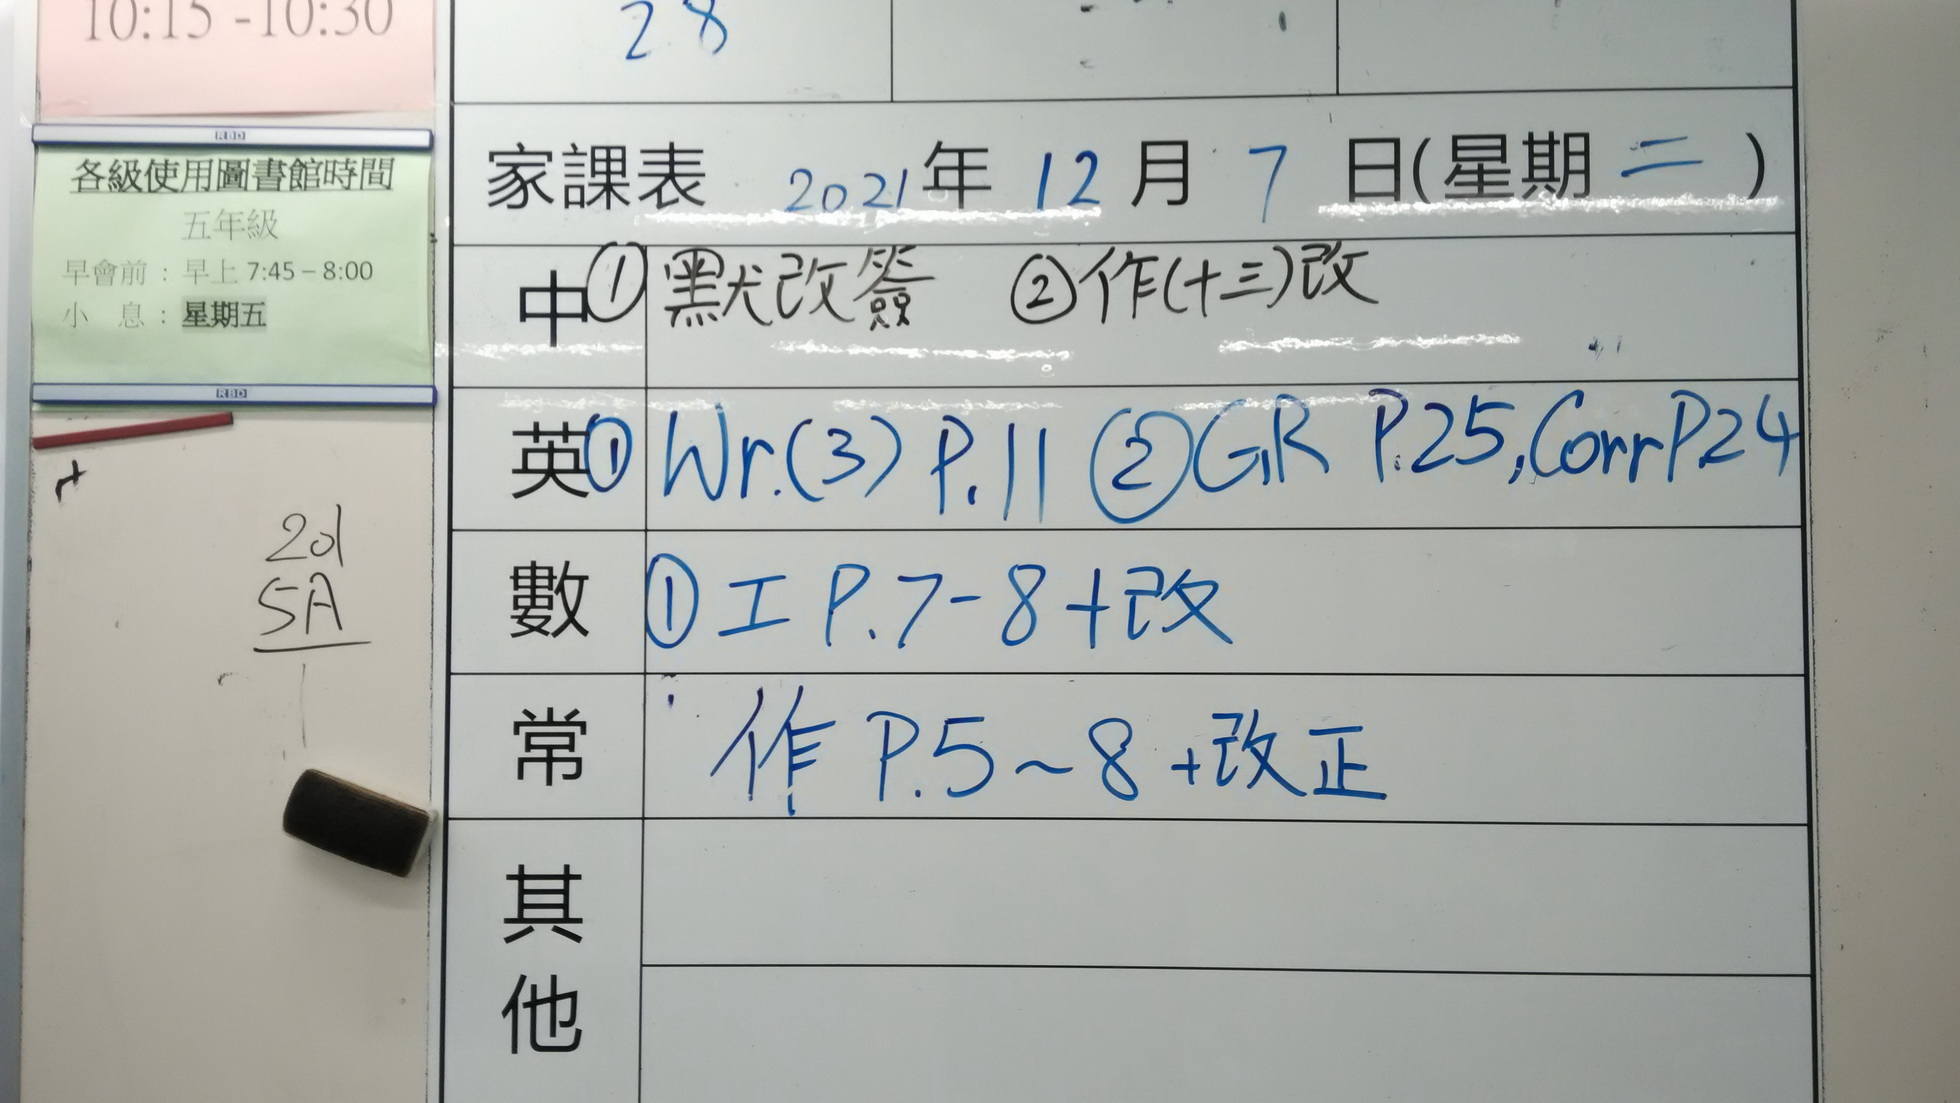 10:15 -10:30
28
RBD
各級使用圖書館時間
五年級
早會前：早上 7:45 – 8:00
小 息：星期五
RBD
家課表 2021 年 12 月 7 日(星期 二 )
中 ① 默改簽 ② 作(十三)改
英 ① Wr.(3) P.11 ② GR P.25, Corr P.24
數 ① 工 P.7-8+改
常 作 P.5~8 +改正
其他
201
5A